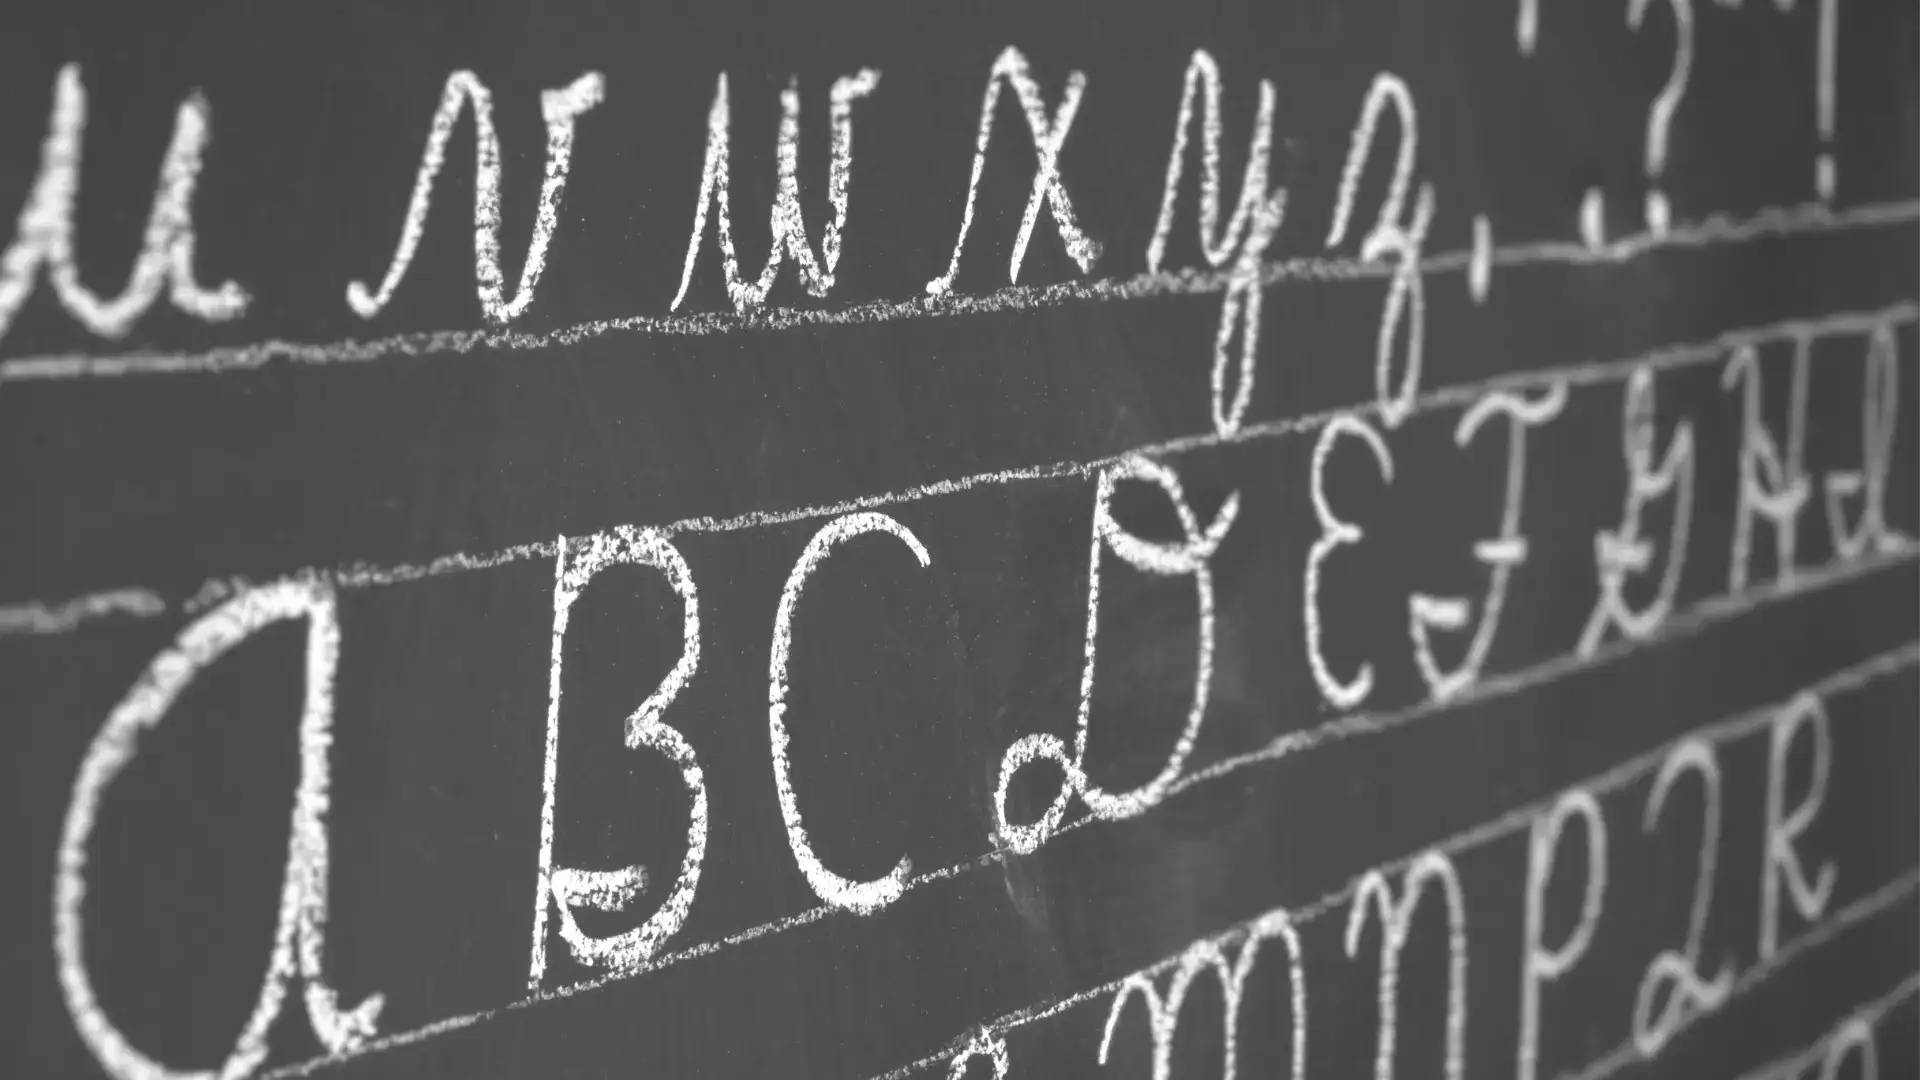 u v w x y z , . ? !
a B C D E F G H I
M N P Q R